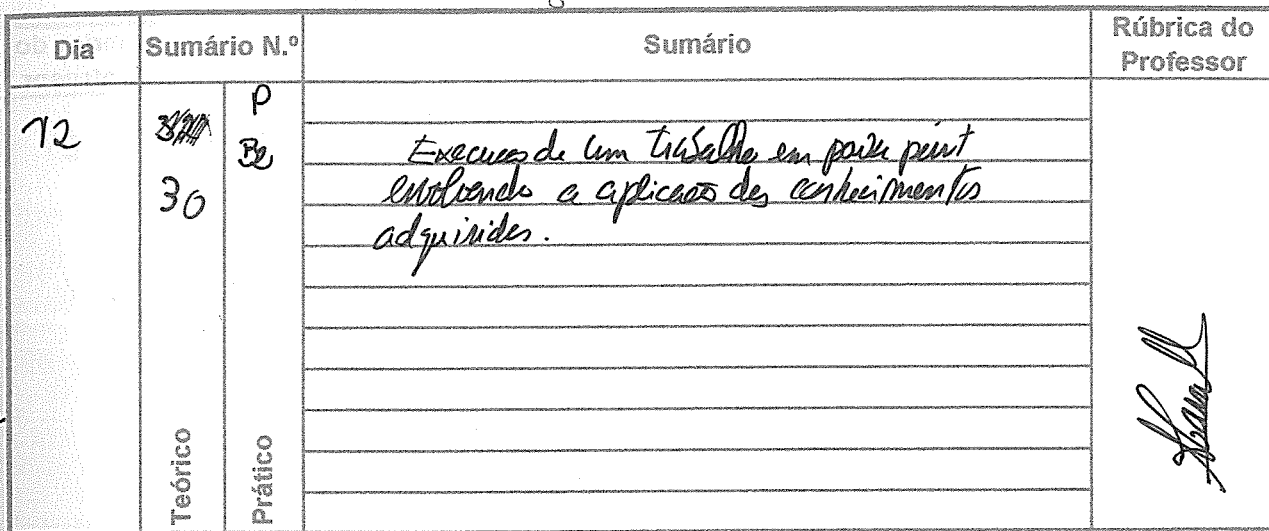 Dia Sumário N.º Sumário Rúbrica do Professor
12 30 P
Execução de um trabalho em power point
envolvendo a aplicação dos conhecimentos
adquiridos.
Teórico Prático